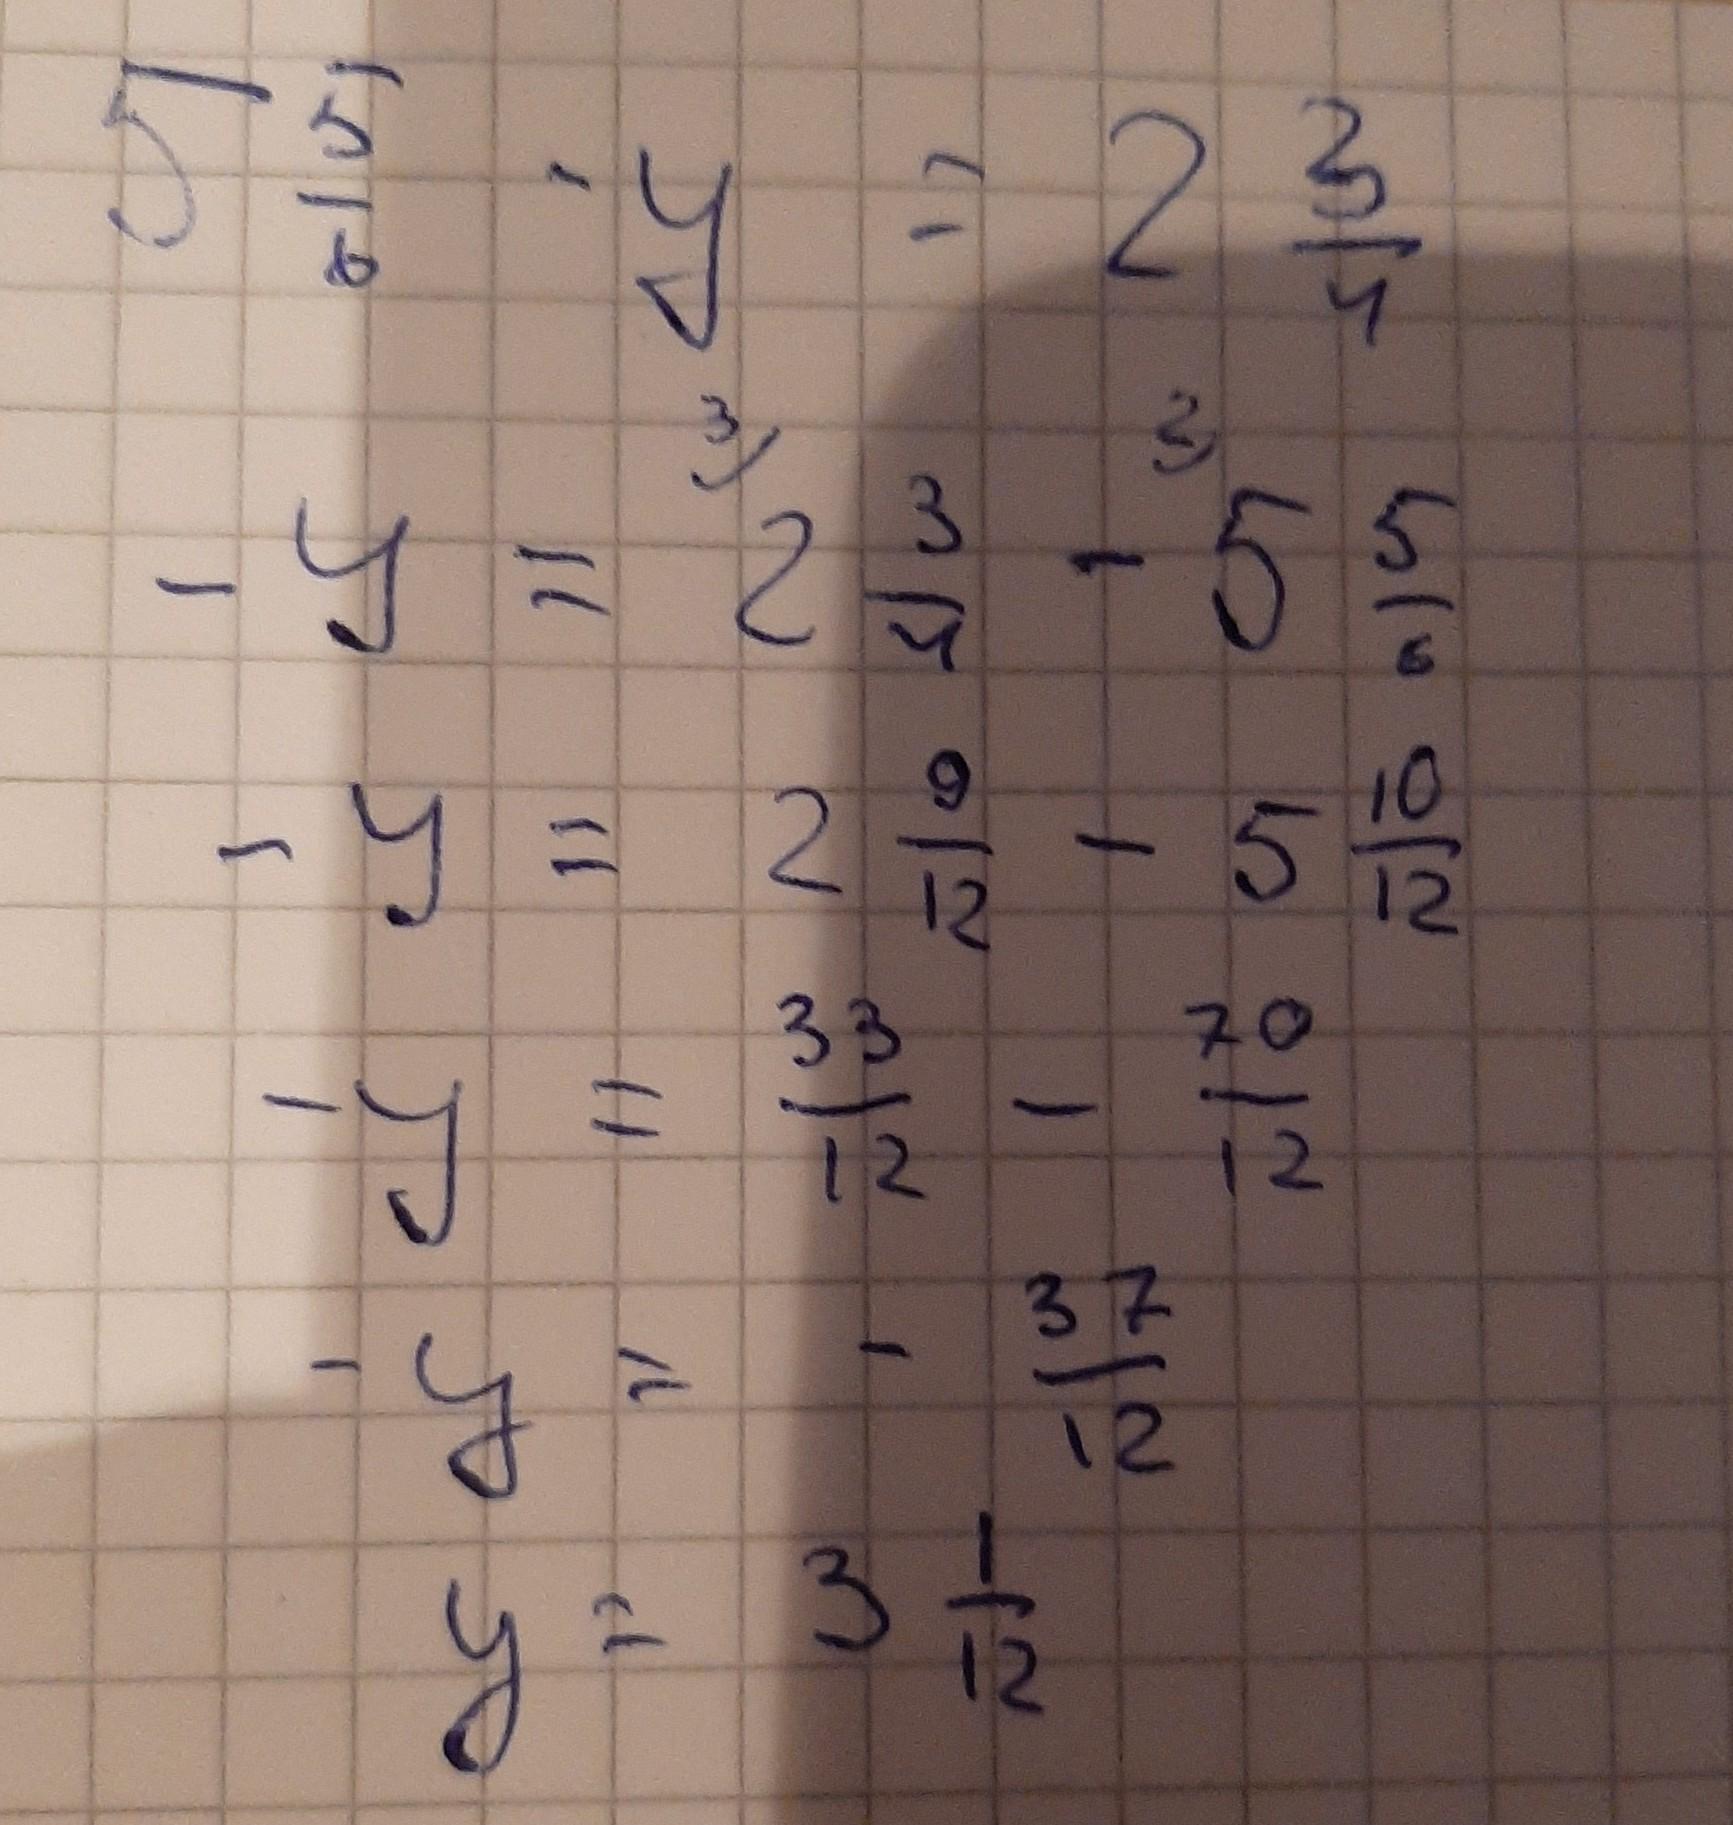 5 5/6 - y = 2 3/4
- y = 2 3/4 - 5 5/6
- y = 2 9/12 - 5 10/12
- y = 33/12 - 70/12
- y = - 37/12
y = 3 1/12